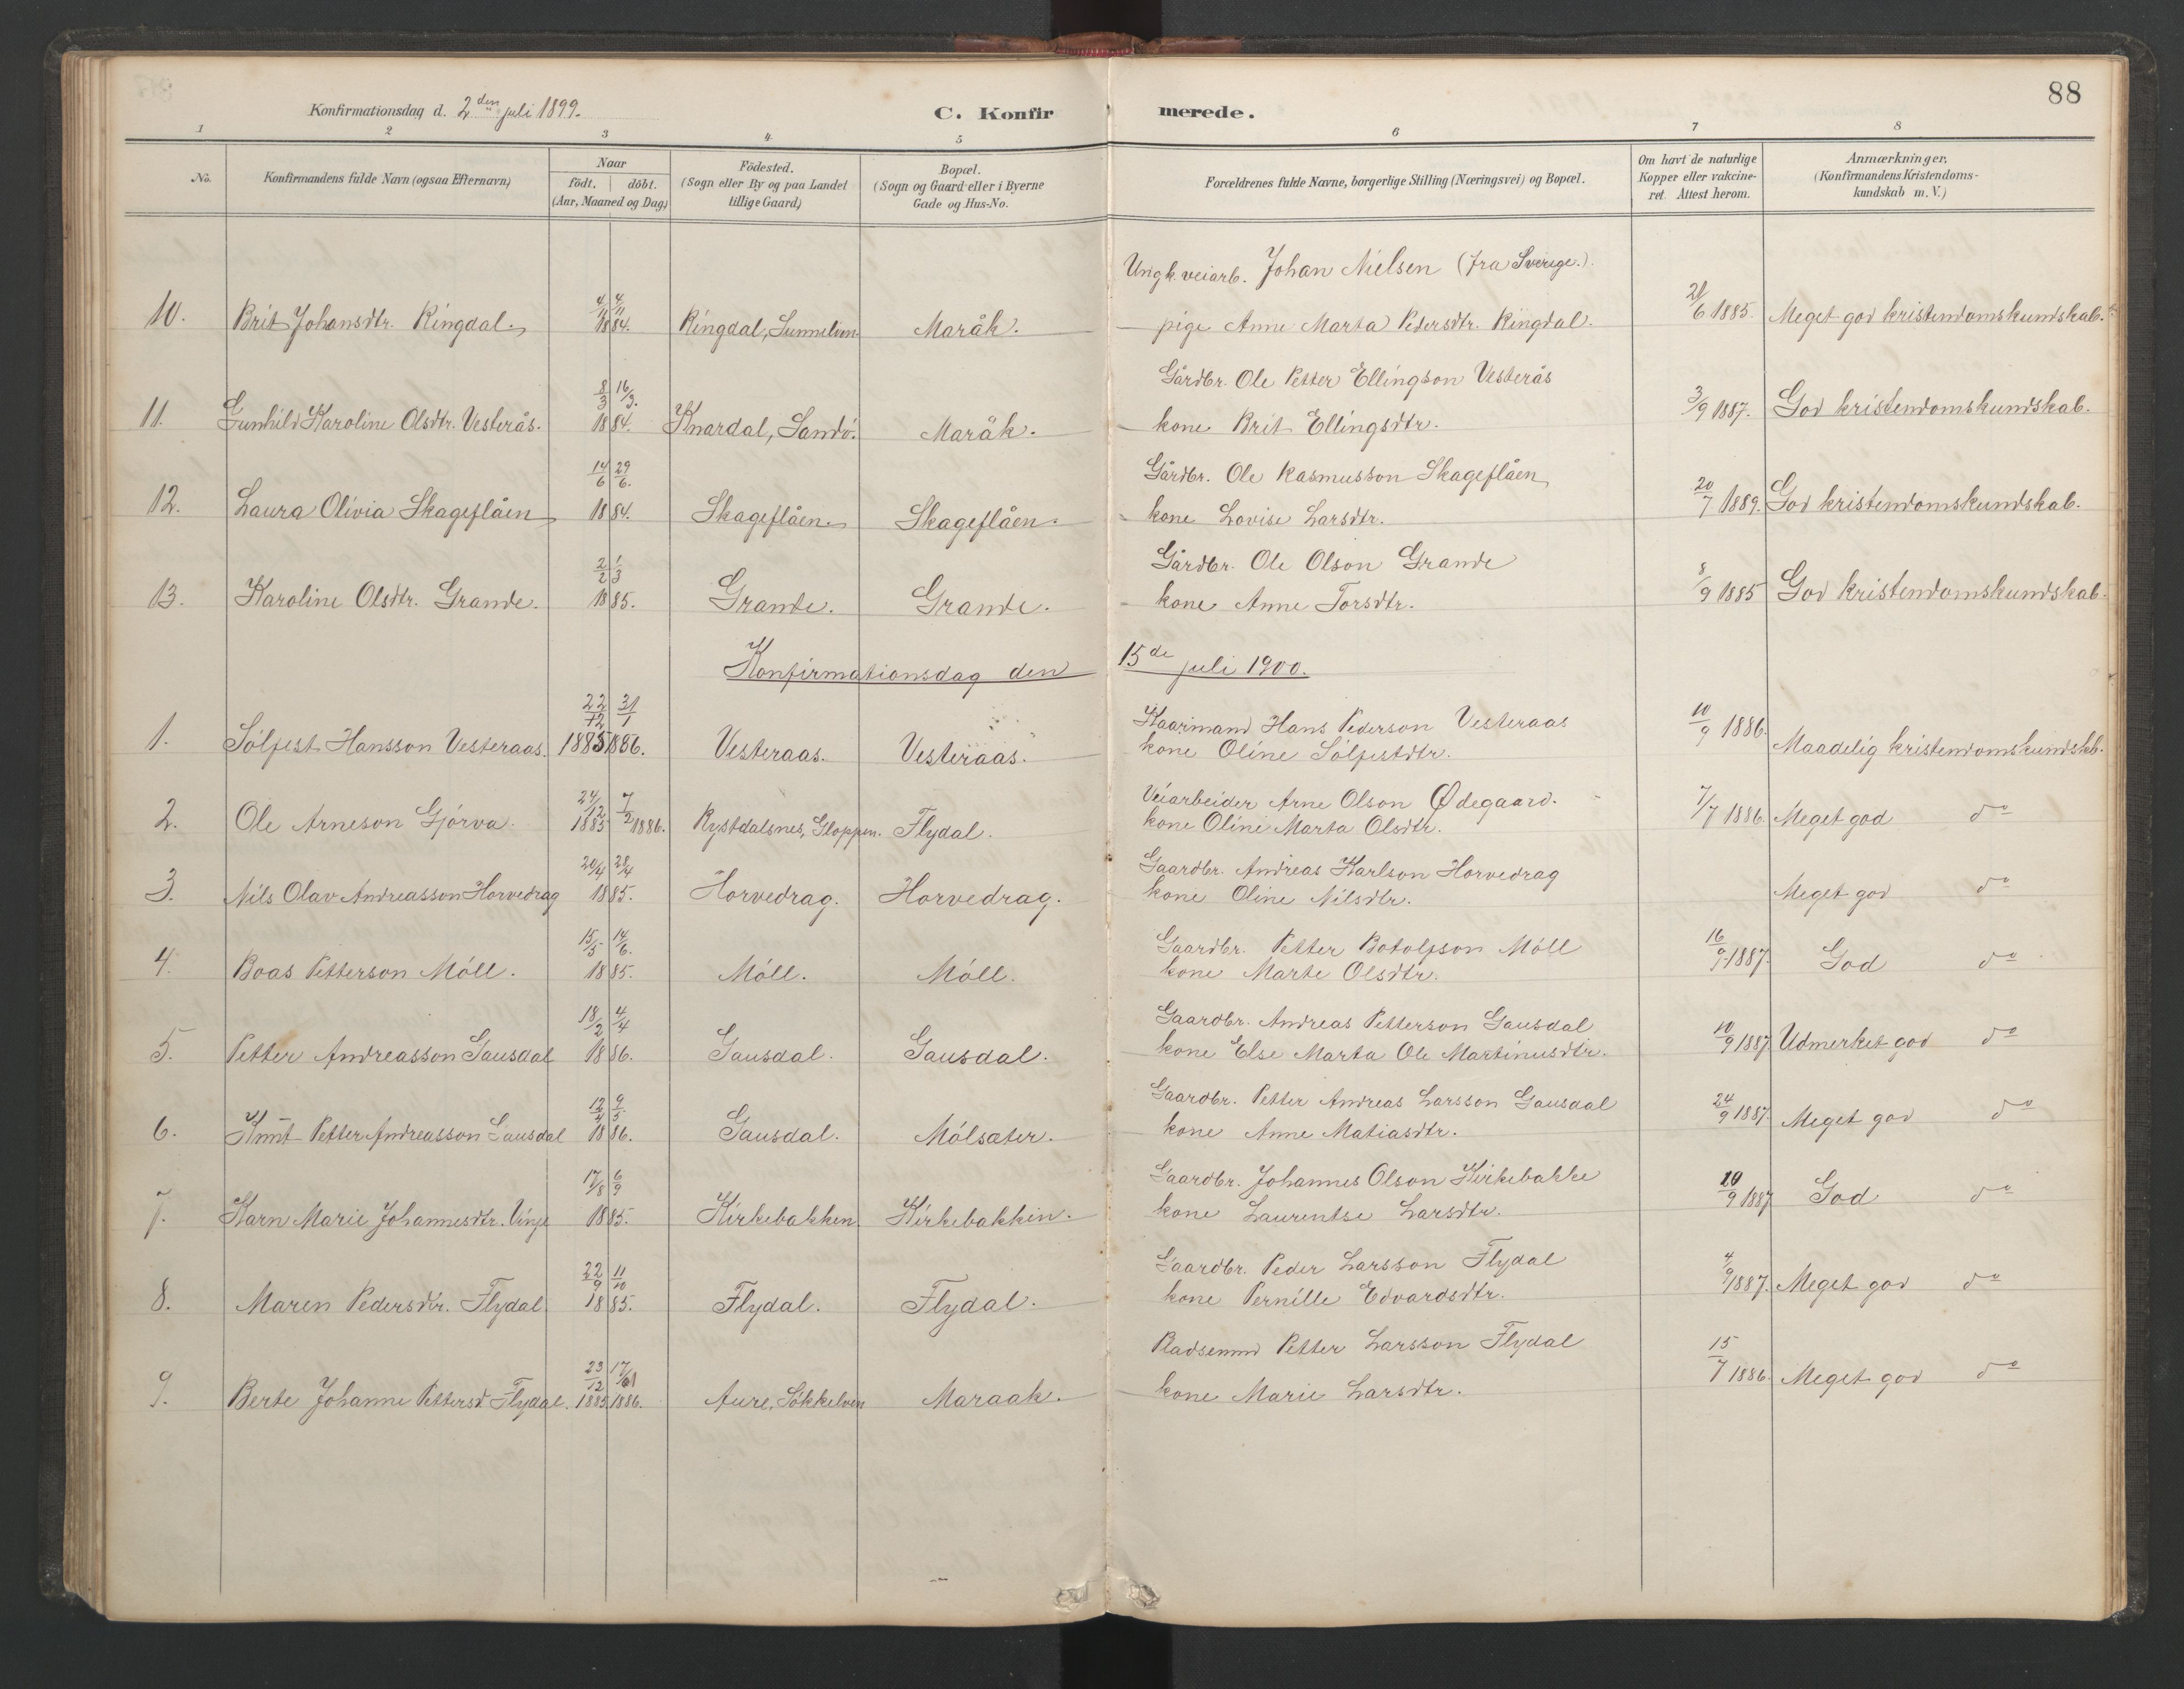 88
Konfirmationsdag d. 2den juli 1899.
C. Konfirmerede.
1 2 3 4 5 6 7 8
No.
Konfirmandens fulde Navn (ogsaa Efternavn)
Naar
födt. | döbt.
(Aar, Maaned og Dag)
Födested.
(Sogn eller By og paa Landet
tillige Gaard)
Bopæl.
(Sogn og Gaard eller i Byerne
Gade og Hus-No.
Forældrenes fulde Navne, borgerlige Stilling (Næringsvei) og Bopæl.
Om havt de naturlige
Kopper eller vakcine-
ret. Attest herom.
Anmærkninger.
(Konfirmandens Kristendoms-
kundskab m. V.)
Ungk. veiarb. Johan Nielsen (fra Sverige.).
10. Brit Johansdtr. Ringdal. 4/11 4/11 1884. Ringdal, Sunnelven Maråk. pige Anne Marta Pedersdtr. Ringdal. 21/6 1885. Meget god kristendomskundskab.
Gårdbr. Ole Petter Ellingson Vesterås
11. Gunhild Karoline Olsdtr. Vesterås. 8/3 16/3. 1884. Knardal, Sandö. Maråk. kone Brit Ellingsdtr. 3/9 1887. God kristendomskundskab.
Gårdbr. Ole Rasmusson Skageflåen
12. Laura Olivia Skageflåen 14/6 29/6. 1884. Skageflåen. Skageflåen. kone Lovise Larsdtr. 20/7 1889. God kristendomskundskab.
Gårdbr. Ole Olson Grande
13. Karoline Olsdtr. Grande. 2/2 1/3 1885. Grande. Grande. kone Anne Torsdtr. 8/9 1885 God kristendomskundskab.
Konfirmationsdag den 15de juli 1900.
Kaarmand Hans Pederson Vesteraas
1. Sölfest Hansson Vesteraas. 22/12 1885 31/1 1886. Vesteraas. Vesteraas. kone Oline Sölfestdtr. 10/9 1886. Maadelig kristendomskundskb.
Veiarbeider Arne Olson Ødegaard.
2. Ole Arneson Gjörva. 24/12 1885 7/2 1886. Rystdalsnes, Gloppen. Flydal. kone Oline Marta Olsdtr. 7/7 1886. Meget god do
Gaardbr. Andreas Karlson Horvedrag
3. Nils Olav Andreasson Horvedrag 20/4 28/4 1885. Horvedrag. Horvedrag. kone Oline Nilsdtr. Meget god do
Gaardbr. Petter Botolfson Möll
4. Boas Petterson Möll. 15/5 14/6. 1885. Möll. Möll. kone Marte Olsdtr. 16/9 1887. God do
Gaardbr. Andreas Petterson Gausdal
5. Petter Andreasson Gausdal 18/2 4/4 1886. Gausdal. Gausdal. kone Else Marta Ole Martinusdtr. 10/9 1887. Udmerket god do
Gaardbr. Petter Andreas Larsson Gausdal
6. Knut Petter Andreasson Gausdal 12/4 9/5 1886. Gausdal. Mölsæter. kone Anne Matiasdtr. 24/9 1887. Meget god do
Gaardbr. Johannes Olson Kirkebakke
7. Karn Marie Johannesdtr. Vinje 17/8 6/9 1885. Kirkebakken. Kirkebakkin. kone Laurentse Larsdtr. 10/9 1887 God do
Gaardbr. Peder Larsson Flydal
8. Maren Pedersdtr. Flydal 22/9 11/10 1885. Flydal. Flydal. kone Pernille Edvardsdtr. 4/9 1887. Meget god do
Petter Larsson Flydal
9. Berte Johanne Pettersd Flydal. 23/12 1885 17/1 1886. Aure, Sökkelven Maraak. kone Marie Larsdtr. 15/7 1886. Meget god do